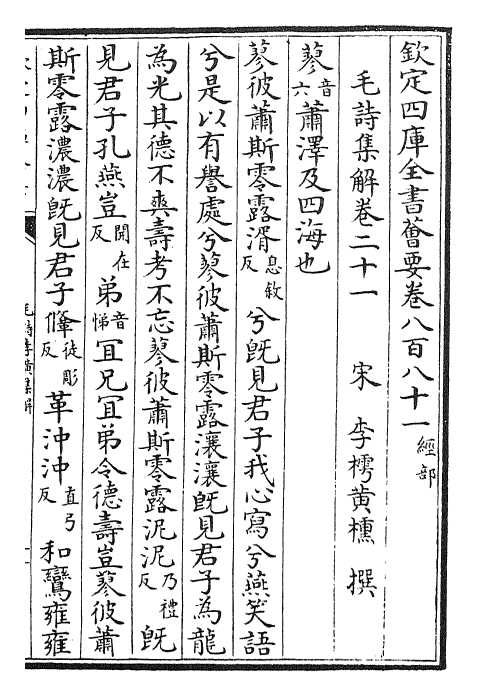 欽定四庫全書薈要卷八百八十一 經部
毛詩集解卷二十一 宋 李樗黄櫄 撰
蓼音六蕭澤及四海也
蓼彼蕭斯零露湑息敘反兮旣見君子我心寫兮燕笑語
兮是以有譽處兮蓼彼蕭斯零露瀼瀼旣見君子為龍
為光其德不爽壽考不忘蓼彼蕭斯零露泥泥乃禮反旣
見君子孔燕豈開在反弟音悌宜兄宜弟令德壽豈蓼彼蕭
斯零露濃濃旣見君子鞗徒彫反革沖沖直弓反和鸞雍雍
毛詩李黄集解